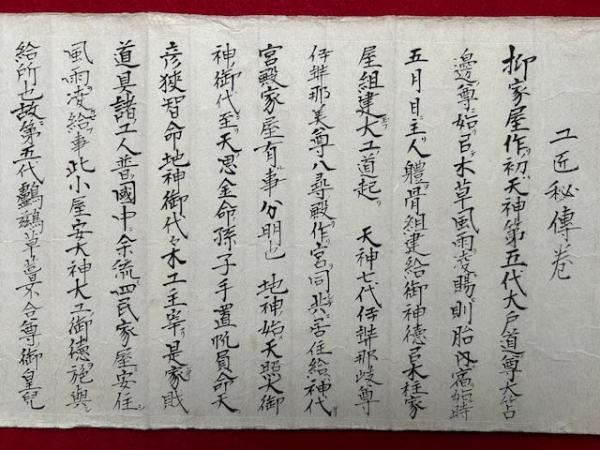 工匠秘傳卷
抑家屋作初天神第五代大戸道尊大苫
邊尊始巳木草風雨凌賜則胎内宿始時
五月目主人體骨組建給御神德巳木柱家
屋組建大工道起 天神七代伊弉那岐尊
伊弉那美尊八尋殿作宮同共居住給神代
宮殿家屋有事分明也 地神始天照大御
神御代至天思金命孫子手置帆員命天
彦狭智命地神御代木工主宰是家財
道具諸工人普國中余流四民家屋安住
風雨凌給事此小屋安大神大工御德施與
給所也故第五代鸕鷀草葺不合尊御皇兒